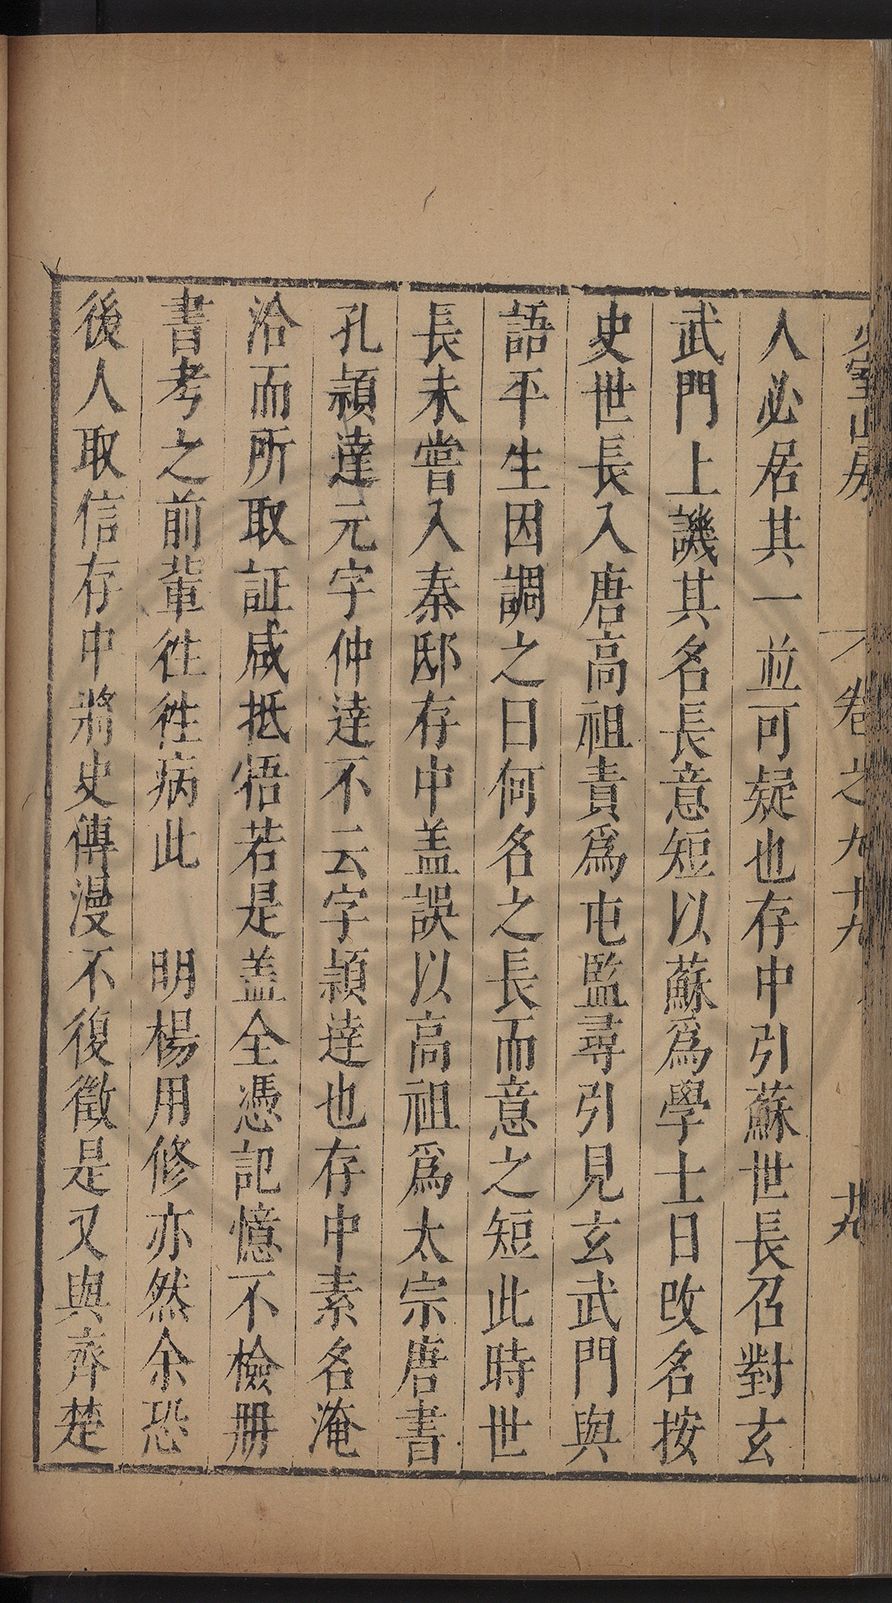 少室山房 卷之九十九 十九
人必居其一並可疑也存中引蘇世長召對玄
武門上譏其名長意短以蘇爲學士日改名按
史世長入唐高祖責爲屯監尋引見玄武門與
語平生因調之曰何名之長而意之短此時世
長未嘗入秦邸存中盖誤以高祖爲太宗唐書
孔頴達元字仲達不云字頴達也存中素名淹
洽而所取証咸抵牾若是盖全憑記憶不檢册
書考之前輩徃徃病此 明楊用修亦然余恐
後人取信存中將史傳漫不復徵是又與齊楚